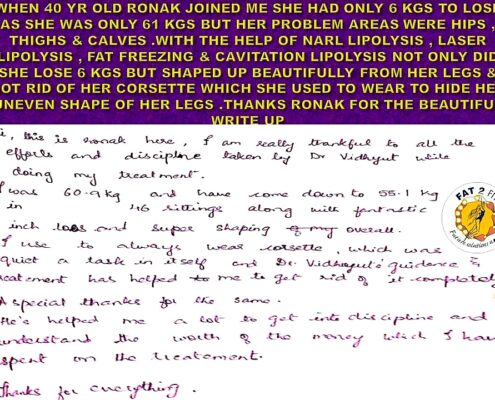 WHEN 40 YR OLD RONAK JOINED ME SHE HAD ONLY 6 KGS TO LOSE
AS SHE WAS ONLY 61 KGS BUT HER PROBLEM AREAS WERE HIPS ,
THIGHS & CALVES .WITH THE HELP OF NARL LIPOLYSIS , LASER
LIPOLYSIS , FAT FREEZING & CAVITATION LIPOLYSIS NOT ONLY DID
SHE LOSE 6 KGS BUT SHAPED UP BEAUTIFULLY FROM HER LEGS &
OT RID OF HER CORSETTE WHICH SHE USED TO WEAR TO HIDE HE
UNEVEN SHAPE OF HER LEGS .THANKS RONAK FOR THE BEAUTIFU
WRITE UP
i, this is ronak here, I am really thankful to all the
efforts and discipline taken by Dr Vidhyut while
doing my treatment.
I was 60.9kg and have come down to 55.1 kg
in 46 sittings along with fantastic
inch loss and super shaping of my overall.
I use to always wear corsette, which was
quiet a task in itself and Dr. Vidhayut's guidance &
eatement has helped to me to get rid of it completely
A special thanks for the same.
He's helped me a lot to get into discipline and
understand the worth of the money which I have
spent on the treatement.
Thanks for everything.
FAT 2 FI